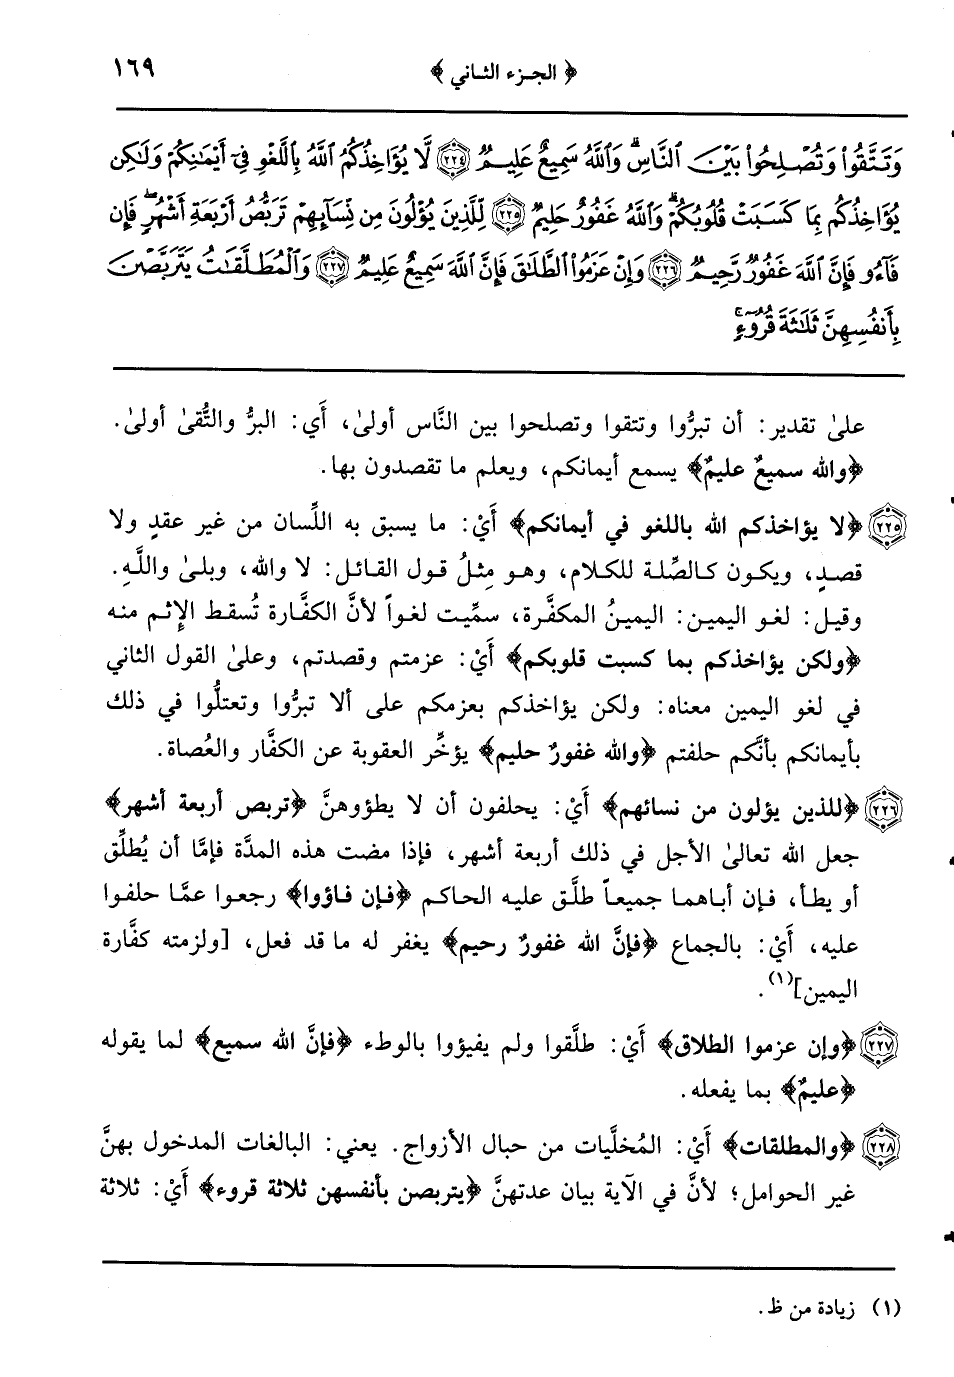 ﴿ الجزء الثاني ﴾ ١٦٩
وَتَتَّقُوا۟ وَتُصْلِحُوا۟ بَيْنَ ٱلنَّاسِ ۗ وَٱللَّهُ سَمِيعٌ عَلِيمٌ ﴿٢٢٤﴾ لَّا يُؤَاخِذُكُمُ ٱللَّهُ بِٱللَّغْوِ فِىٓ أَيْمَـٰنِكُمْ وَلَـٰكِن
يُؤَاخِذُكُم بِمَا كَسَبَتْ قُلُوبُكُمْ ۗ وَٱللَّهُ غَفُورٌ حَلِيمٌ ﴿٢٢٥﴾ لِّلَّذِينَ يُؤْلُونَ مِن نِّسَآئِهِمْ تَرَبُّصُ أَرْبَعَةِ أَشْهُرٍ ۖ فَإِن
فَآءُو فَإِنَّ ٱللَّهَ غَفُورٌ رَّحِيمٌ ﴿٢٢٦﴾ وَإِنْ عَزَمُوا۟ ٱلطَّلَـٰقَ فَإِنَّ ٱللَّهَ سَمِيعٌ عَلِيمٌ ﴿٢٢٧﴾ وَٱلْمُطَلَّقَـٰتُ يَتَرَبَّصْنَ
بِأَنفُسِهِنَّ ثَلَـٰثَةَ قُرُوٓءٍ ۚ
علىٰ تقدير: أن تبرُّوا وتتقوا وتصلحوا بين النَّاس أولىٰ، أَي: البرُّ والتُّقىٰ أولىٰ.
﴿والله سميعٌ عليمٌ﴾ يسمع أيمانكم، ويعلم ما تقصدون بها.
﴿٢٢٥﴾ ﴿لا يؤاخذكم الله باللغو في أيمانكم﴾ أَيْ: ما يسبق به اللِّسان من غير عقدٍ ولا
قصدٍ، ويكون كالصِّلة للكلام، وهو مِثلُ قول القائل: لا والله، وبلىٰ واللَّهِ.
وقيل: لغو اليمين: اليمينُ المكفَّرة، سمِّيت لغواً لأنَّ الكفَّارة تُسقط الإِثم منه
﴿ولكن يؤاخذكم بما كسبت قلوبكم﴾ أَيْ: عزمتم وقصدتم، وعلىٰ القول الثاني
في لغو اليمين معناه: ولكن يؤاخذكم بعزمكم على ألا تبرُّوا وتعتلُّوا في ذلك
بأيمانكم بأنَّكم حلفتم ﴿والله غفورٌ حليم﴾ يؤخِّر العقوبة عن الكفَّار والعُصاة.
﴿٢٢٦﴾ ﴿للذين يؤلون من نسائهم﴾ أَيْ: يحلفون أن لا يطؤوهنَّ ﴿تربص أربعة أشهر﴾
جعل الله تعالىٰ الأجل في ذلك أربعة أشهر، فإذا مضت هذه المدَّة فإمَّا أن يُطلِّق
أو يطأ، فإن أباهما جميعاً طلَّق عليه الحاكم ﴿فإن فاؤوا﴾ رجعوا عمَّا حلفوا
عليه، أَيْ: بالجماع ﴿فإنَّ الله غفورٌ رحيم﴾ يغفر له ما قد فعل، [ولزمته كفَّارة
اليمين](١).
﴿٢٢٧﴾ ﴿وإن عزموا الطلاق﴾ أَيْ: طلَّقوا ولم يفيؤوا بالوطء ﴿فإنَّ الله سميع﴾ لما يقوله
﴿عليمٌ﴾ بما يفعله.
﴿٢٢٨﴾ ﴿والمطلقات﴾ أَيْ: المُخلَّيات من حبال الأزواج. يعني: البالغات المدخول بهنَّ
غير الحوامل؛ لأنَّ في الآية بيان عدتهنَّ ﴿يتربصن بأنفسهن ثلاثة قروء﴾ أَيْ: ثلاثة
(١) زيادة من ظ.